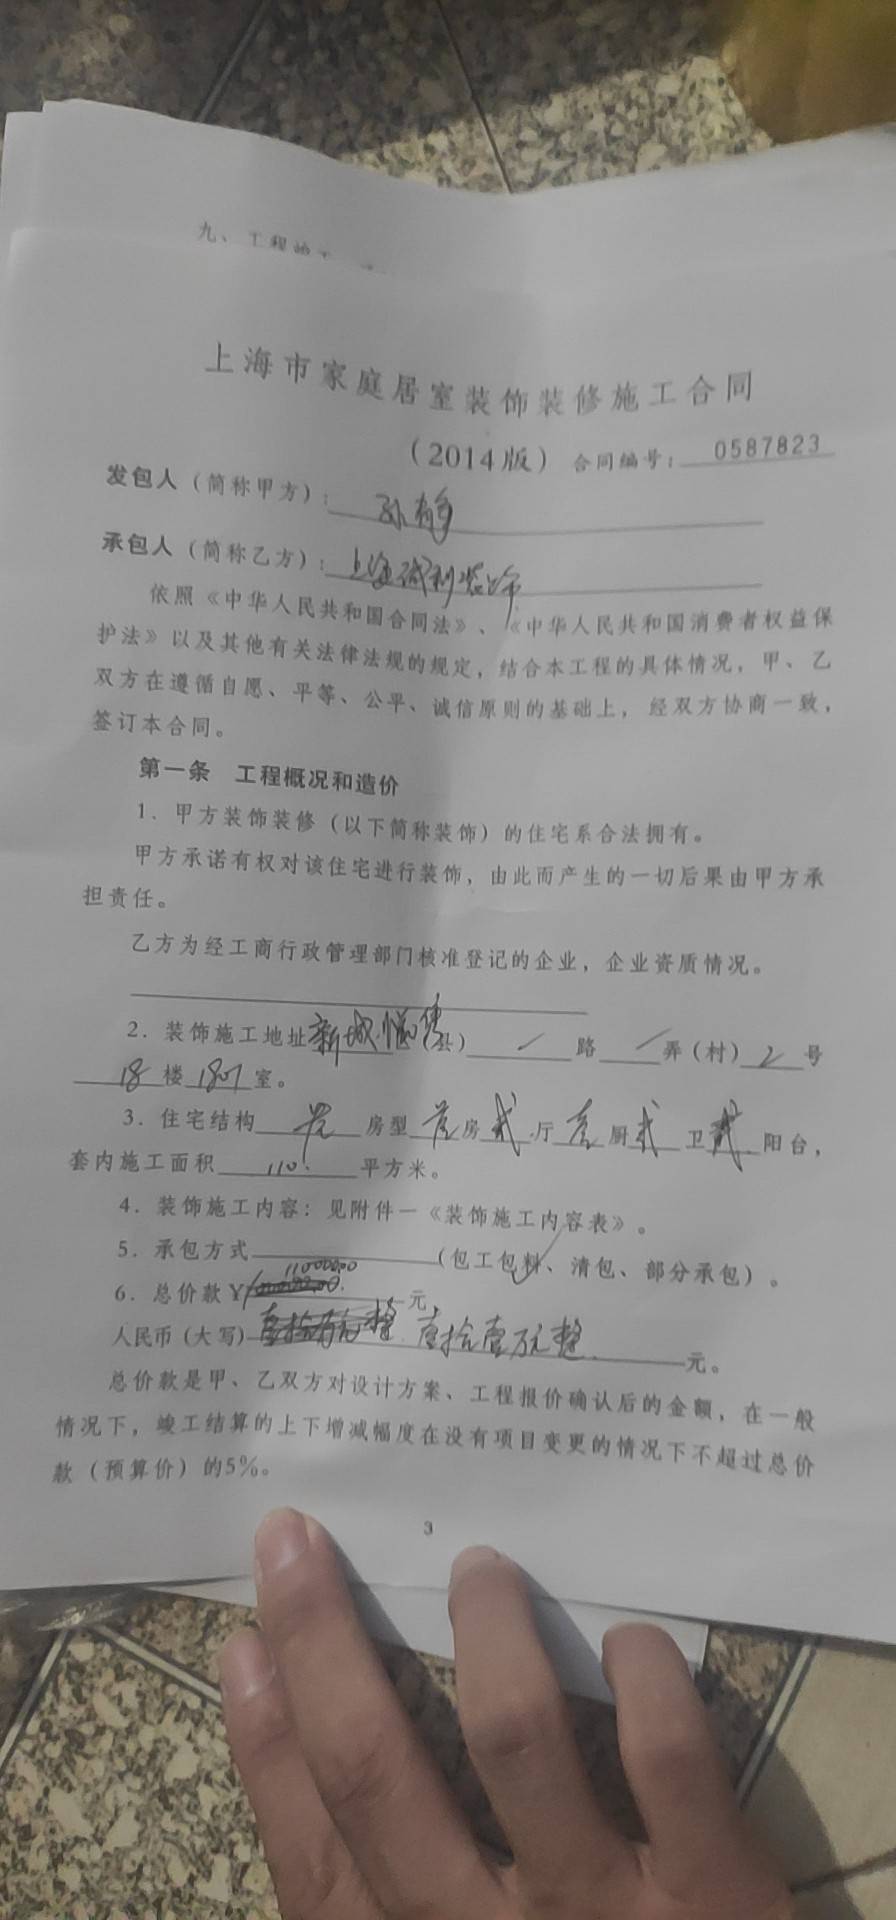 九、工程
上海市家庭居室装饰装修施工合同
（2014版）合同编号：0587823
发包人（简称甲方）：孙有
承包人（简称乙方）：上海诚利装饰
依照《中华人民共和国合同法》、《中华人民共和国消费者权益保
护法》以及其他有关法律法规的规定，结合本工程的具体情况，甲、乙
双方在遵循自愿、平等、公平、诚信原则的基础上，经双方协商一致，
签订本合同。
第一条 工程概况和造价
1. 甲方装饰装修（以下简称装饰）的住宅系合法拥有。
甲方承诺有权对该住宅进行装饰，由此而产生的一切后果由甲方承
担责任。
乙方为经工商行政管理部门核准登记的企业，企业资质情况。
2. 装饰施工地址新城（县）/路/弄（村）2号
18楼1807室。
3. 住宅结构房型房贰厅壹厨贰卫贰阳台，
套内施工面积110平方米。
4. 装饰施工内容：见附件一《装饰施工内容表》。
5. 承包方式（包工包料、清包、部分承包）。
6. 总价款¥110000.00元，
人民币（大写）壹拾壹万元整元。
总价款是甲、乙双方对设计方案、工程报价确认后的金额，在一般
情况下，竣工结算的上下增减幅度在没有项目变更的情况下不超过总价
款（预算价）的5%。
3